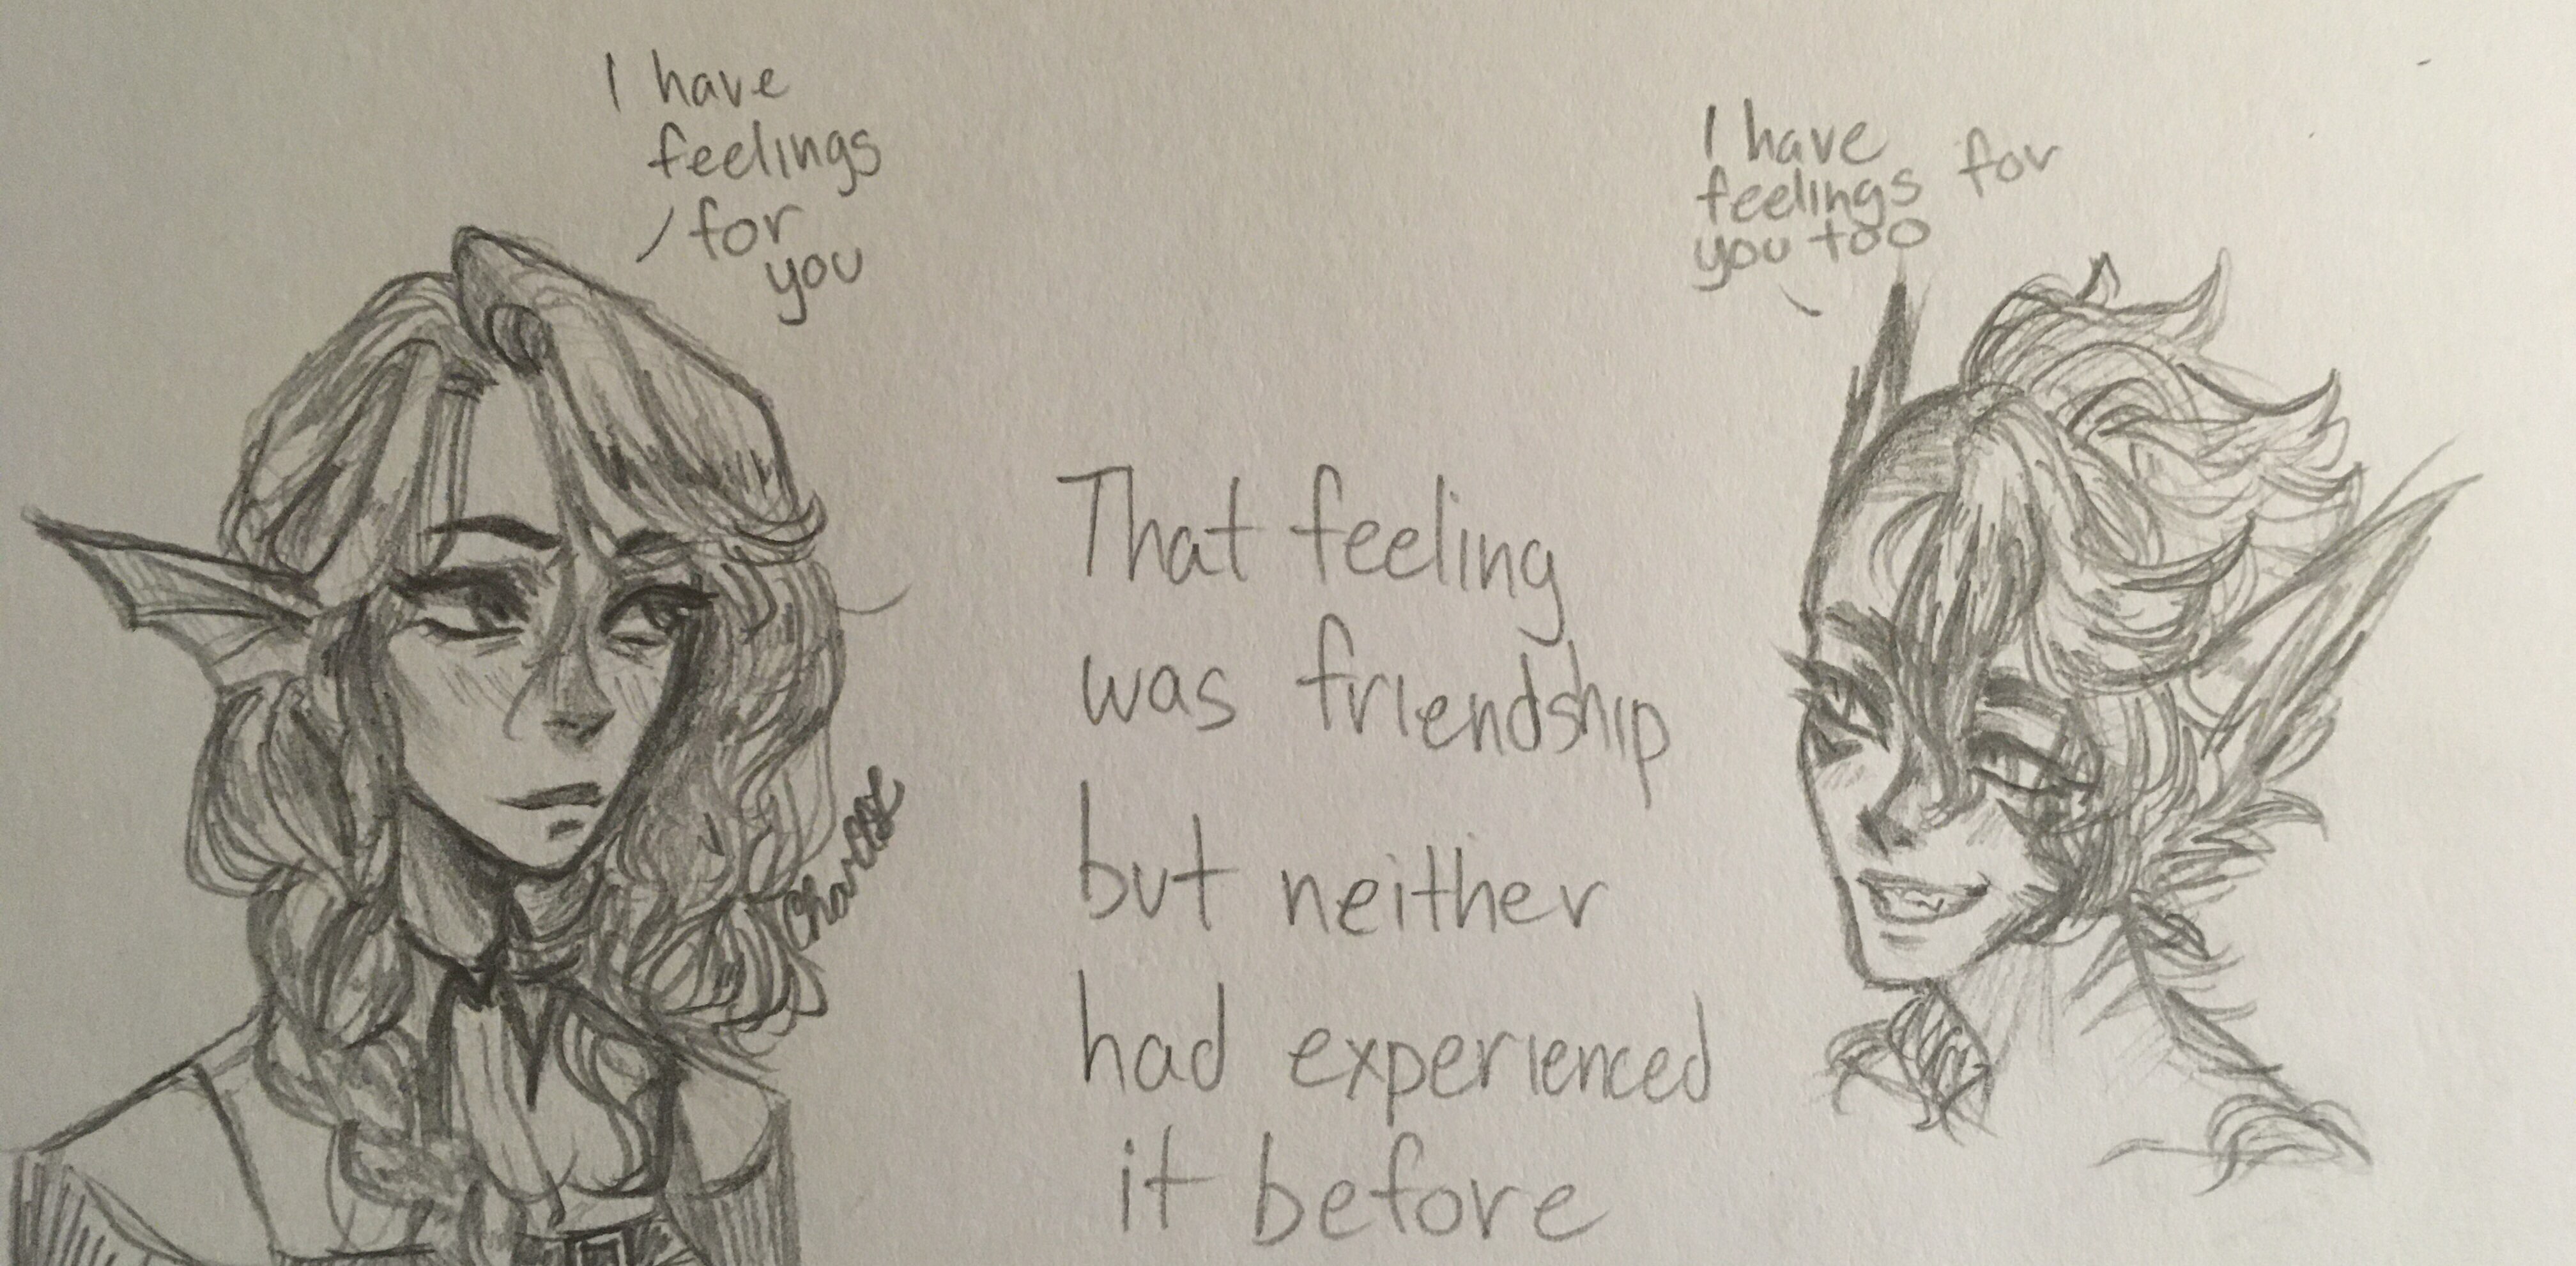 I have
feelings
for
you
I have
feelings for
you too
That feeling
was friendship
but neither
had experienced
it before